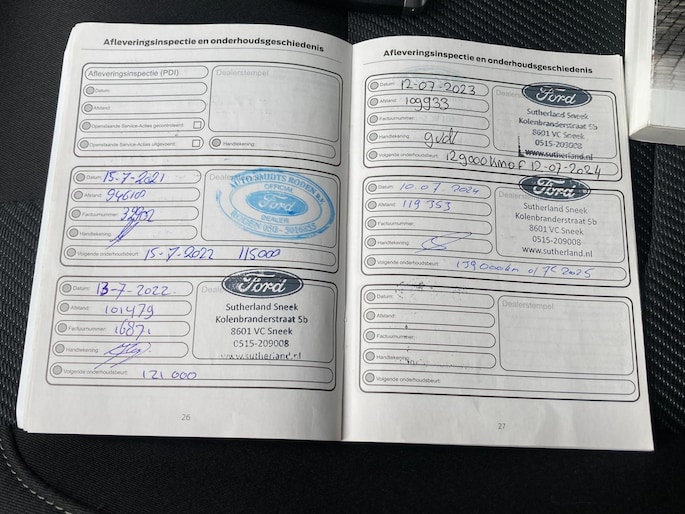 Afleveringsinspectie en onderhoudsgeschiedenis
Afleveringsinspectie (PDI)
Dealerstempel
Datum:
Afstand:
Openstaande Service-Acties gecontroleerd:
Openstaande Service-Acties uitgevoerd:
Handtekening:
Datum: 15-7-2021
Afstand: 94618
Factuurnummer:
Handtekening:
AUTO SMIDTS RODEN B.V.
OFFICIAL
Ford
DEALER
RODEN 050-5016355
Volgende onderhoudsbeurt: 15-7-2022 115000
Datum: 13-7-2022
Afstand: 101479
Factuurnummer: 16871
Handtekening:
Ford
Sutherland Sneek
Kolenbranderstraat 5b
8601 VC Sneek
0515-209008
www.sutherland.nl
Volgende onderhoudsbeurt: 121 000
26
Afleveringsinspectie en onderhoudsgeschiedenis
Datum: 12-07-2023
Afstand: 109933
Factuurnummer:
Handtekening:
Ford
Sutherland Sneek
Kolenbranderstraat 5b
8601 VC Sneek
0515-209008
www.sutherland.nl
Volgende onderhoudsbeurt: 129000km of 12-07-2024
Datum: 10-07-2024
Afstand: 119 353
Factuurnummer:
Handtekening:
Ford
Sutherland Sneek
Kolenbranderstraat 5b
8601 VC Sneek
0515-209008
www.sutherland.nl
Volgende onderhoudsbeurt: 139000km 2025
Datum:
Afstand:
Factuurnummer:
Handtekening:
Dealerstempel
Volgende onderhoudsbeurt:
27